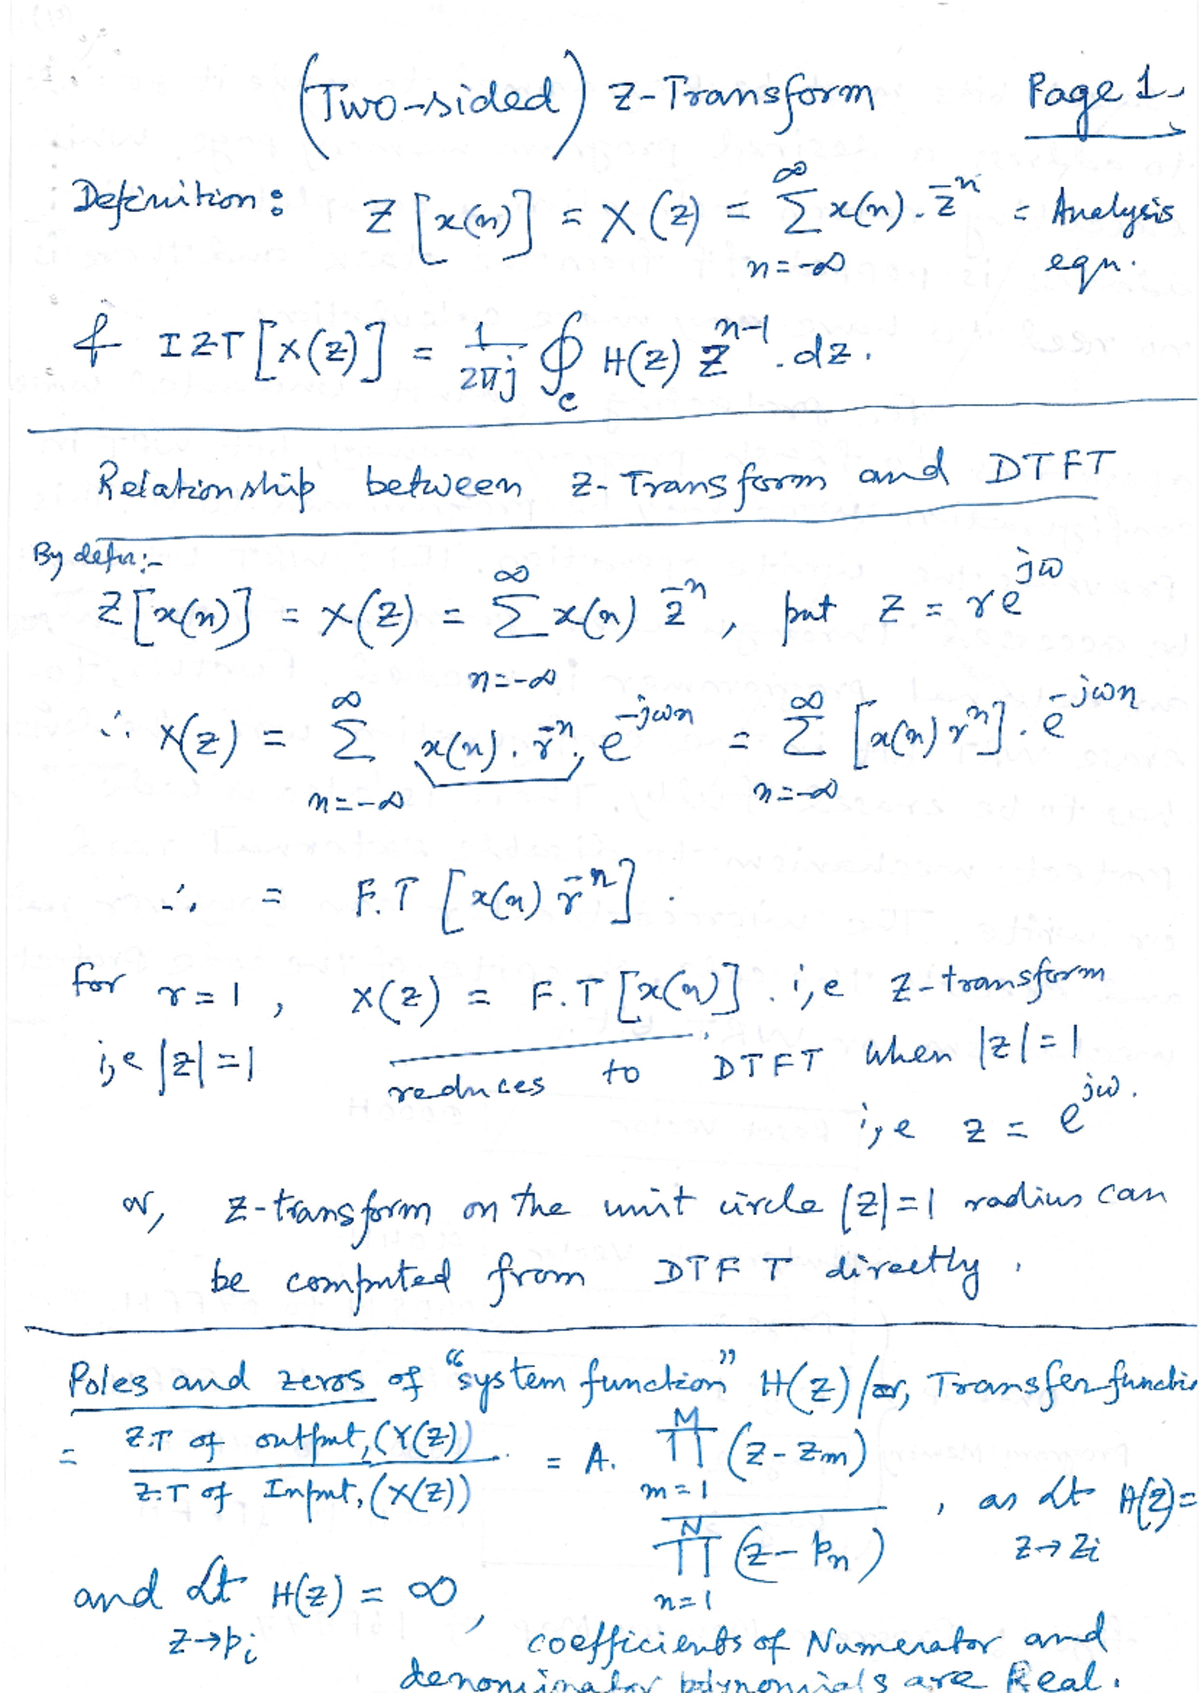 (Two-sided) Z-Transform Page 1
Definition: Z[x(n)] = X(z) = ∑_{n=-∞}^{∞} x(n). z^{-n} = Analysis eqn.
& IZT[X(z)] = 1/(2πj) ∮_c H(z) z^{n-1}. dz.
Relationship between Z-Transform and DTFT
By defn:-
Z[x(n)] = X(z) = ∑_{n=-∞}^{∞} x(n) z^{-n}, put z = re^{jω}
∴ X(z) = ∑_{n=-∞}^{∞} x(n). r^{-n}. e^{-jωn} = ∑_{n=-∞}^{∞} [x(n) r^{-n}]. e^{-jωn}
∴ = F.T [x(n) r^{-n}].
for r=1, X(z) = F.T [x(n)]. i,e Z-transform
i,e |z|=1 reduces to DTFT when |z|=1
i,e z = e^{jω}.
or, Z-transform on the unit circle |z|=1 radius can
be computed from DTFT directly.
Poles and zeros of "system function" H(z)/or, Transfer functio
= Z.T of output,(Y(z)) / Z.T of Input,(X(z)) = A. ∏_{m=1}^{M} (z-z_m) / ∏_{n=1}^{N} (z-p_n), as Lt_{z→z_i} H(z)=
and Lt_{z→p_i} H(z) = ∞,
coefficients of Numerator and
denominator polynomials are Real.